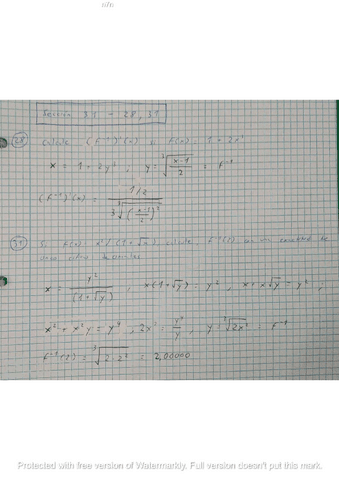 Sección 3.1 - 28, 31
28 Calcule (f⁻¹)'(x) si f(x) = 1 + 2x³
x = 1 + 2y³ , y = ∛((x-1)/2) = f⁻¹
(f⁻¹)'(x) = (1/2) / (3 ∛((x-1)/2)²)
31 Si f(x) = x²/(1+√x) calcule f⁻¹(2) con
x = y²/(1+√y) , x(1+√y) = y² , x + x√y = y² ;
x² + x²y = y⁴ , 2x² = y⁴/y , y = ∛(2x²) = f⁻¹
f⁻¹(2) = ∛(2·2²) = 2,00000
Protected with free version of Watermarkly. Full version doesn't put this mark.